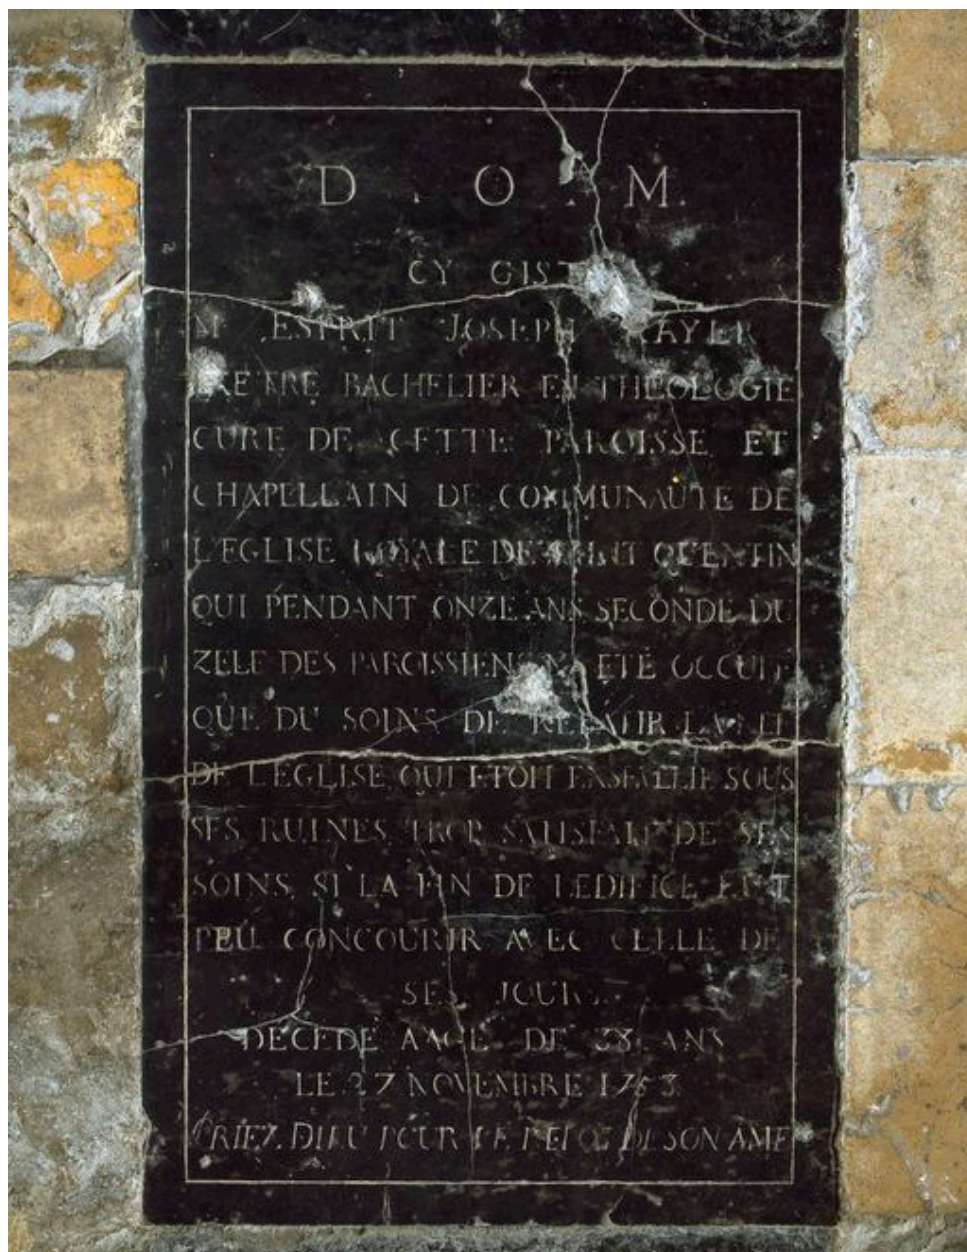 D . O . M.
CY GIST
M ESPRIT JOSEPH
PRETRE BACHELIER EN THEOLOGIE
CURE DE CETTE PAROISSE ET
CHAPELLAIN DE COMMUNAUTE DE
L'EGLISE ROYALE DE SAINT QUENTIN
QUI PENDANT ONZE ANS SECONDE DU
ZELE DES PAROISSIENS N'A ETÉ OCCUPE
QUE DU SOINS DE REBATIR LA NEF
DE L'EGLISE QUI ETOIT ENSEVELIE SOUS
SES RUINES TROP SATISFAIT DE SES
SOINS, SI LA FIN DE L'EDIFICE EUT
PEU CONCOURIR AVEC CELLE DE
SES JOURS.
DECEDE AAGE DE ANS
LE 27 NOVEMBRE
PRIEZ DIEU POUR LE REPOS DE SON AME